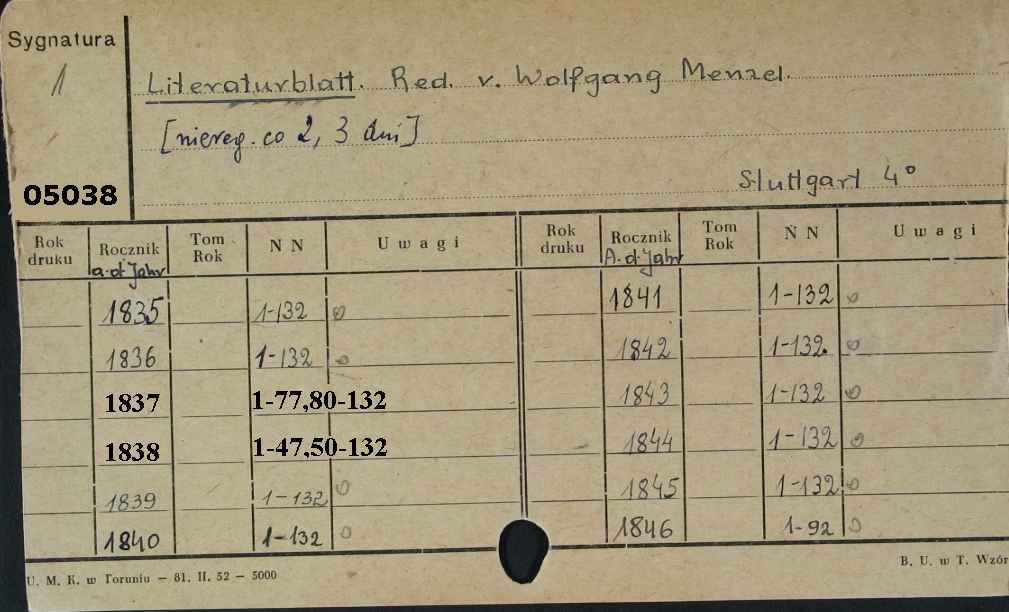 Sygnatura
1
Literaturblatt. Red. v. Wolfgang Menzel.
[niereg. co 2, 3 dni]
05038
Stuttgart 4°
Rok druku Rocznik a.d. Jahr Tom Rok N N Uwagi Rok druku Rocznik A.d. Jahr Tom Rok N N Uwagi
1835 1-132 o 1841 1-132 o
1836 1-132 o 1842 1-132. o
1837 1-77,80-132 1843 1-132 o
1838 1-47,50-132 1844 1-132 o
1839 1-132 o 1845 1-132 o
1840 1-132 o 1846 1-92 o
U. M. K. w Toruniu — 81. II. 52 — 5000
B. U. w T. Wzór